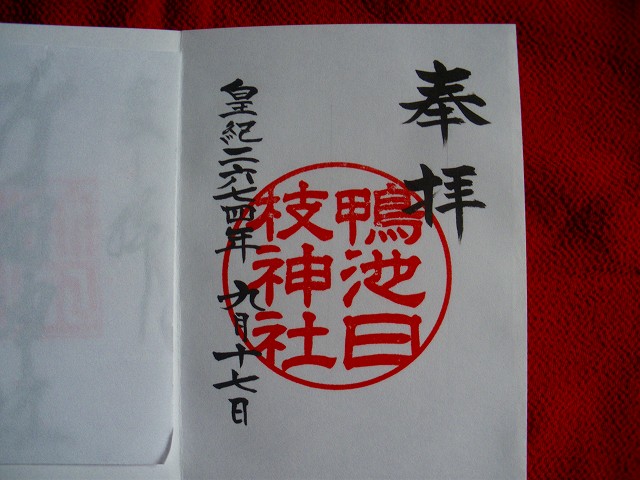 奉拝
鴨池日
枝神社
皇紀二六七四年 九月十七日